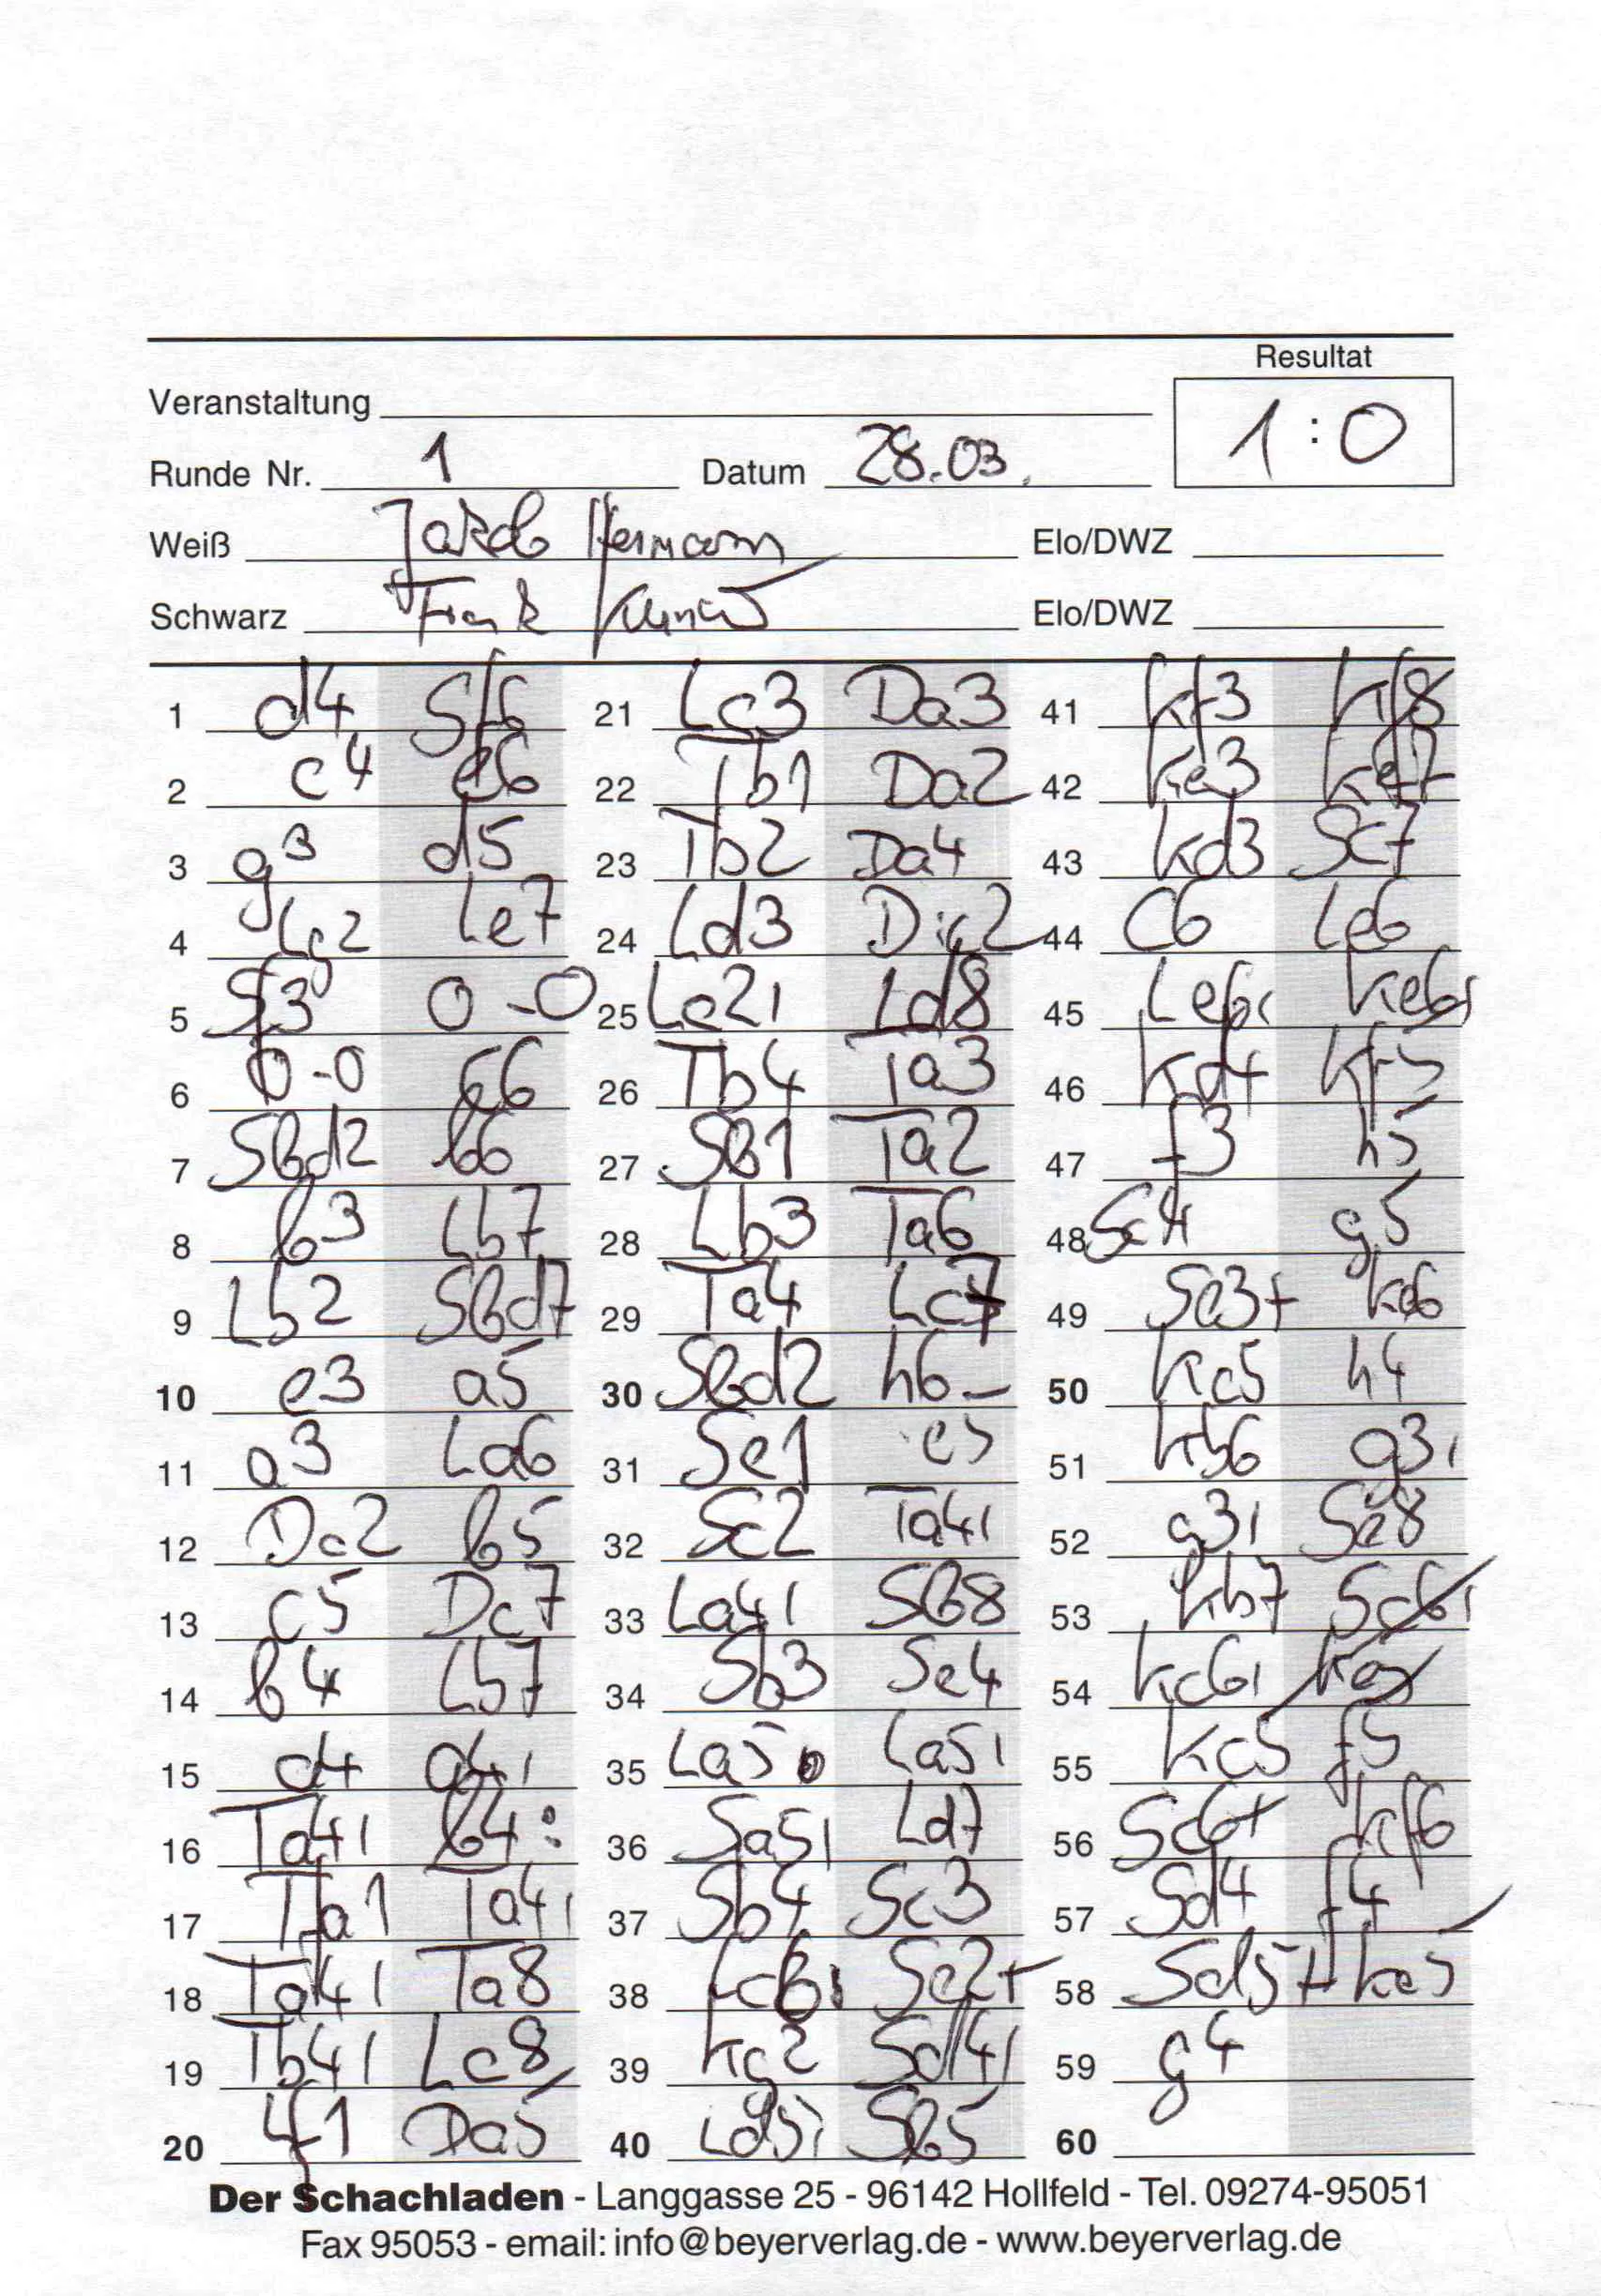 Resultat
Veranstaltung
1 : 0
Runde Nr. 1 Datum 28.03.
Weiß Jakob Hermann Elo/DWZ
Schwarz Frank Elo/DWZ
1 d4 Sf6 21 Lc3 Da3 41 Kf3 Kf8
2 c4 e6 22 Tb1 Da2 42 Ke3 Ke7
3 g3 d5 23 Tb2 Da4 43 Kd3 Sc7
4 Lg2 Le7 24 Ld3 Dc2 44 C6 Le6
5 Sf3 0-0 25 Lc2: Ld8 45 Le6: Ke6:
6 0-0 c6 26 Tb4 Ta3 46 Kd4 Kf5
7 Sbd2 b6 27 Sb1 Ta2 47 f3 h5
8 b3 Lb7 28 Lb3 Ta6 48 Sc4 g5
9 Lb2 Sbd7 29 Ta4 Lc7 49 Se3+ Ke6
10 e3 a5 30 Sbd2 h6 50 Kc5 h4
11 a3 La6 31 Se1 e5 51 Kb6 g3:
12 Dc2 b5 32 Sc2 Ta4: 52 g3: Se8
13 c5 Dc7 33 La4: Sb8 53 Kb7 Sc6:
14 b4 Lb7 34 Sb3 Se4 54 Kc6: Ke5
15 d4 a4: 35 La5 La5: 55 Kc5 f5
16 Ta4: b4: 36 Sa5: Ld7 56 Sc6+ Kf6
17 Tfa1 Ta4: 37 Sb4 Sc3 57 Sd4 f4
18 Ta4: Ta8 38 Lc6: Se2+ 58 Sd5+ Ke5
19 Tb4: Lc8 39 Kg2 Sd4: 59 g4
20 Lf1 Da5 40 Ld5: Sb5 60
Der Schachladen - Langgasse 25 - 96142 Hollfeld - Tel. 09274-95051
Fax 95053 - email: info@beyerverlag.de - www.beyerverlag.de